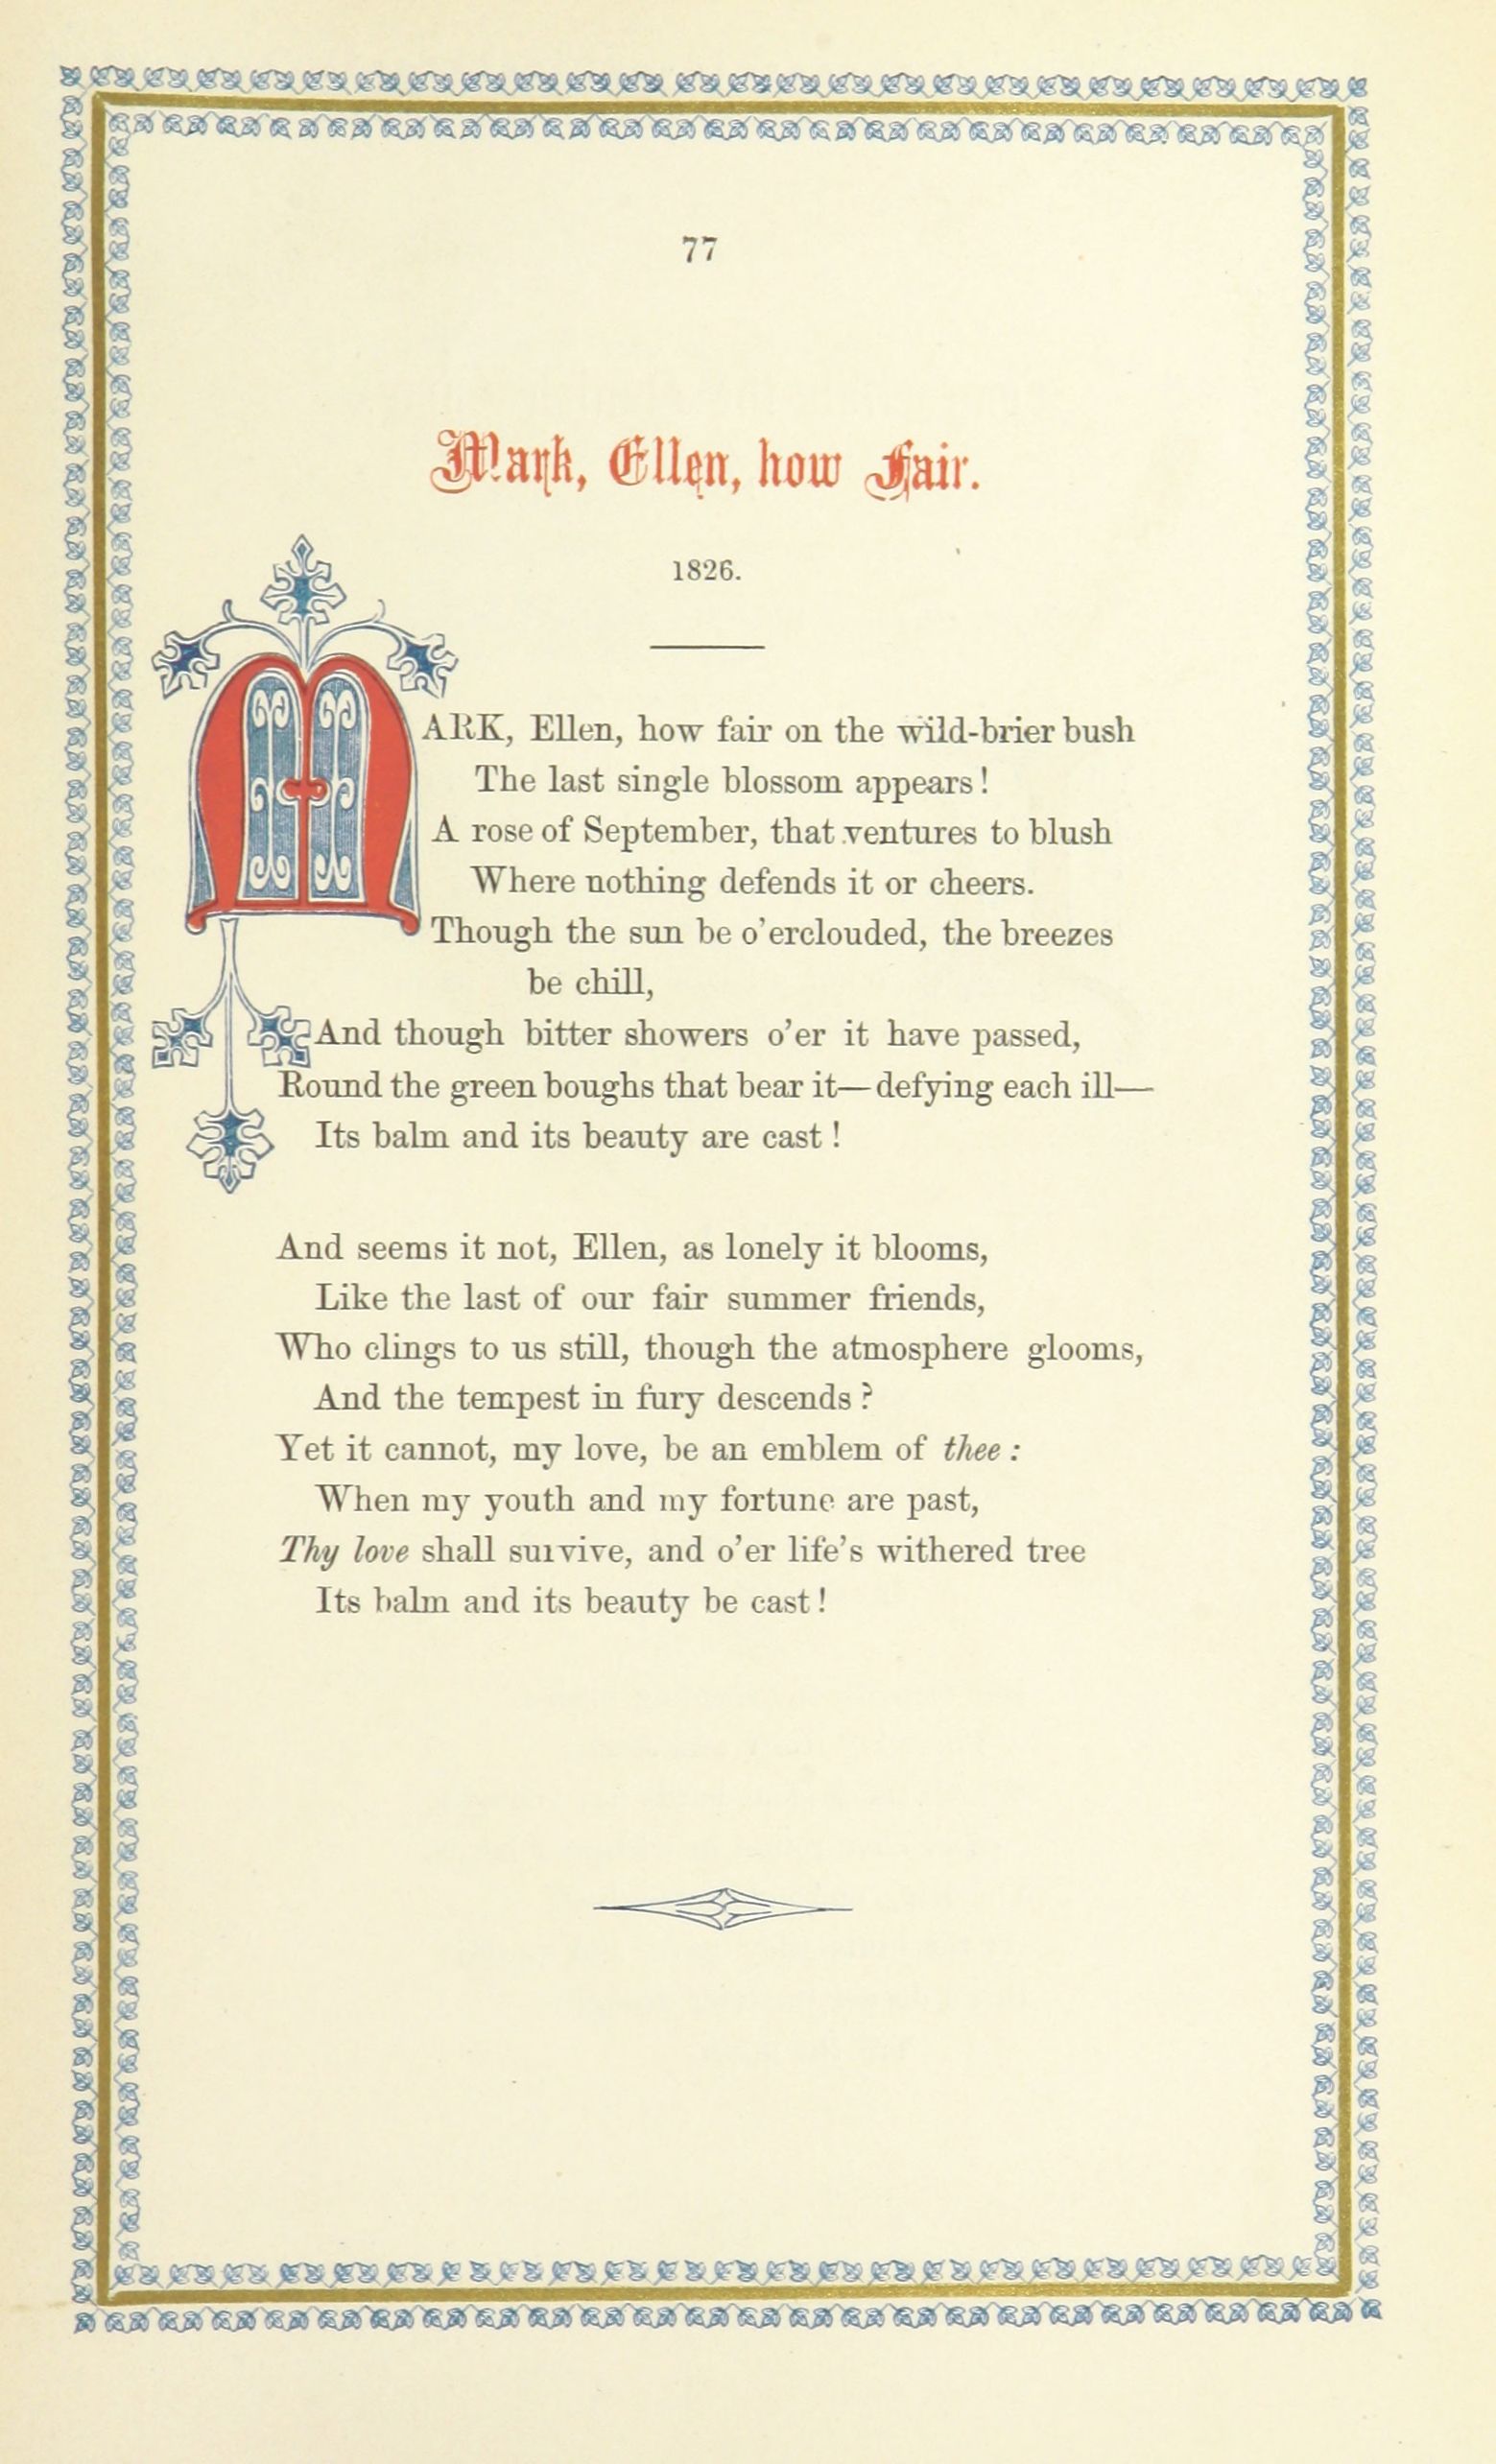 77
Mark, Ellen, how Fair.
1826.
MARK, Ellen, how fair on the wild-brier bush
The last single blossom appears!
A rose of September, that ventures to blush
Where nothing defends it or cheers.
Though the sun be o'erclouded, the breezes
be chill,
And though bitter showers o'er it have passed,
Round the green boughs that bear it—defying each ill—
Its balm and its beauty are cast!
And seems it not, Ellen, as lonely it blooms,
Like the last of our fair summer friends,
Who clings to us still, though the atmosphere glooms,
And the tempest in fury descends?
Yet it cannot, my love, be an emblem of thee:
When my youth and my fortune are past,
Thy love shall survive, and o'er life's withered tree
Its balm and its beauty be cast!